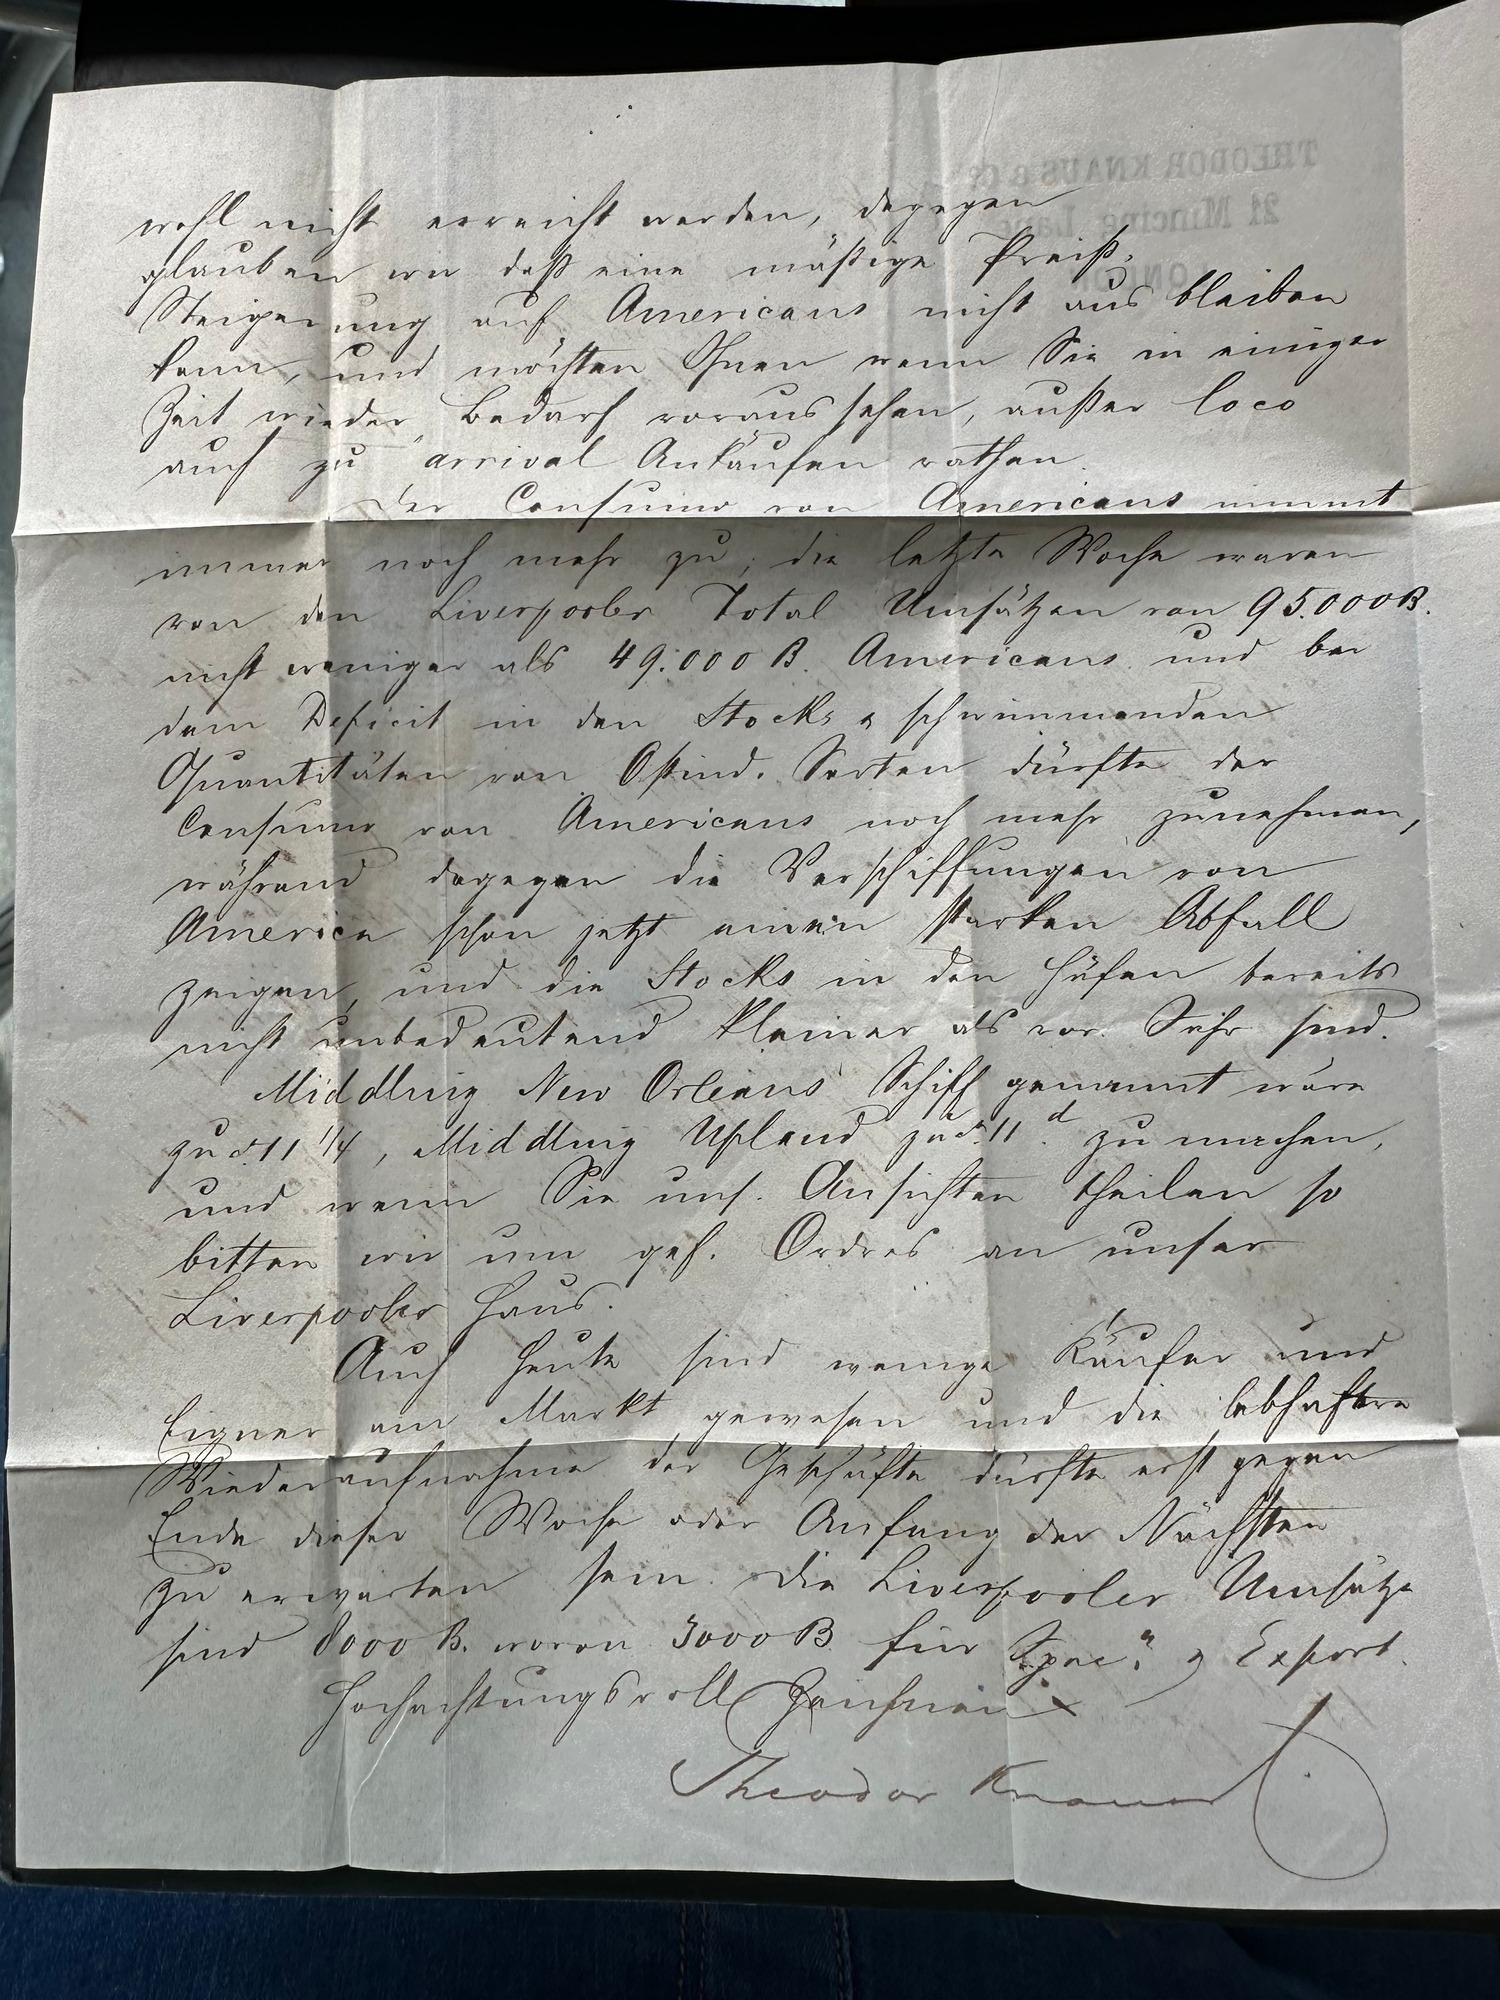 THEODOR KNAUS & Co
21 Mincing Lane
LONDON
wohl nicht erreicht werden, dagegen
glauben wir daß eine mäßige Preiß-
Steigerung auf Americans nicht aus bleiben
kann, und möchten Ihnen wenn Sie in einiger
Zeit wieder Bedarf voraussehen, außer loco
auch zu "arrival Ankäufen rathen.
Der Consumo von Americans nimmt
immer noch mehr zu; die letzte Woche waren
von den Liverpooler Total Umsätzen von 95.000 B.
nicht weniger als 49.000 B. Americans und bei
dem Deficit in den Stocks & schwimmenden
Quantitäten von Ostind. Sorten dürfte der
Consumo von Americans noch mehr zunehmen,
während dagegen die Verschiffungen von
America schon jetzt einen starken Abfall
zeigen, und die Stocks in den Häfen bereits
nicht unbedeutend kleiner als vor. Jahr sind.
Middling New Orleans Schiff genannt wäre
zu d. 11 1/4, Middling Upland zu d. 11 d zu machen,
und wenn Sie uns. Ansichten theilen so
bitten wir um gef. Ordres an unser
Liverpooler Haus.
Auch heute sind wenige Käufer und
Eigner am Markt gewesen und die lebhaftere
Wiederaufnahme der Geschäfte dürfte erst gegen
Ende dieser Woche oder Anfang der Nächsten
zu erwarten sein. Die Liverpooler Umsätze
sind 8000 B. wovon 3000 B für Spec.n & Export.
Hochachtungsvoll Zeichnen
Theodor Knaus